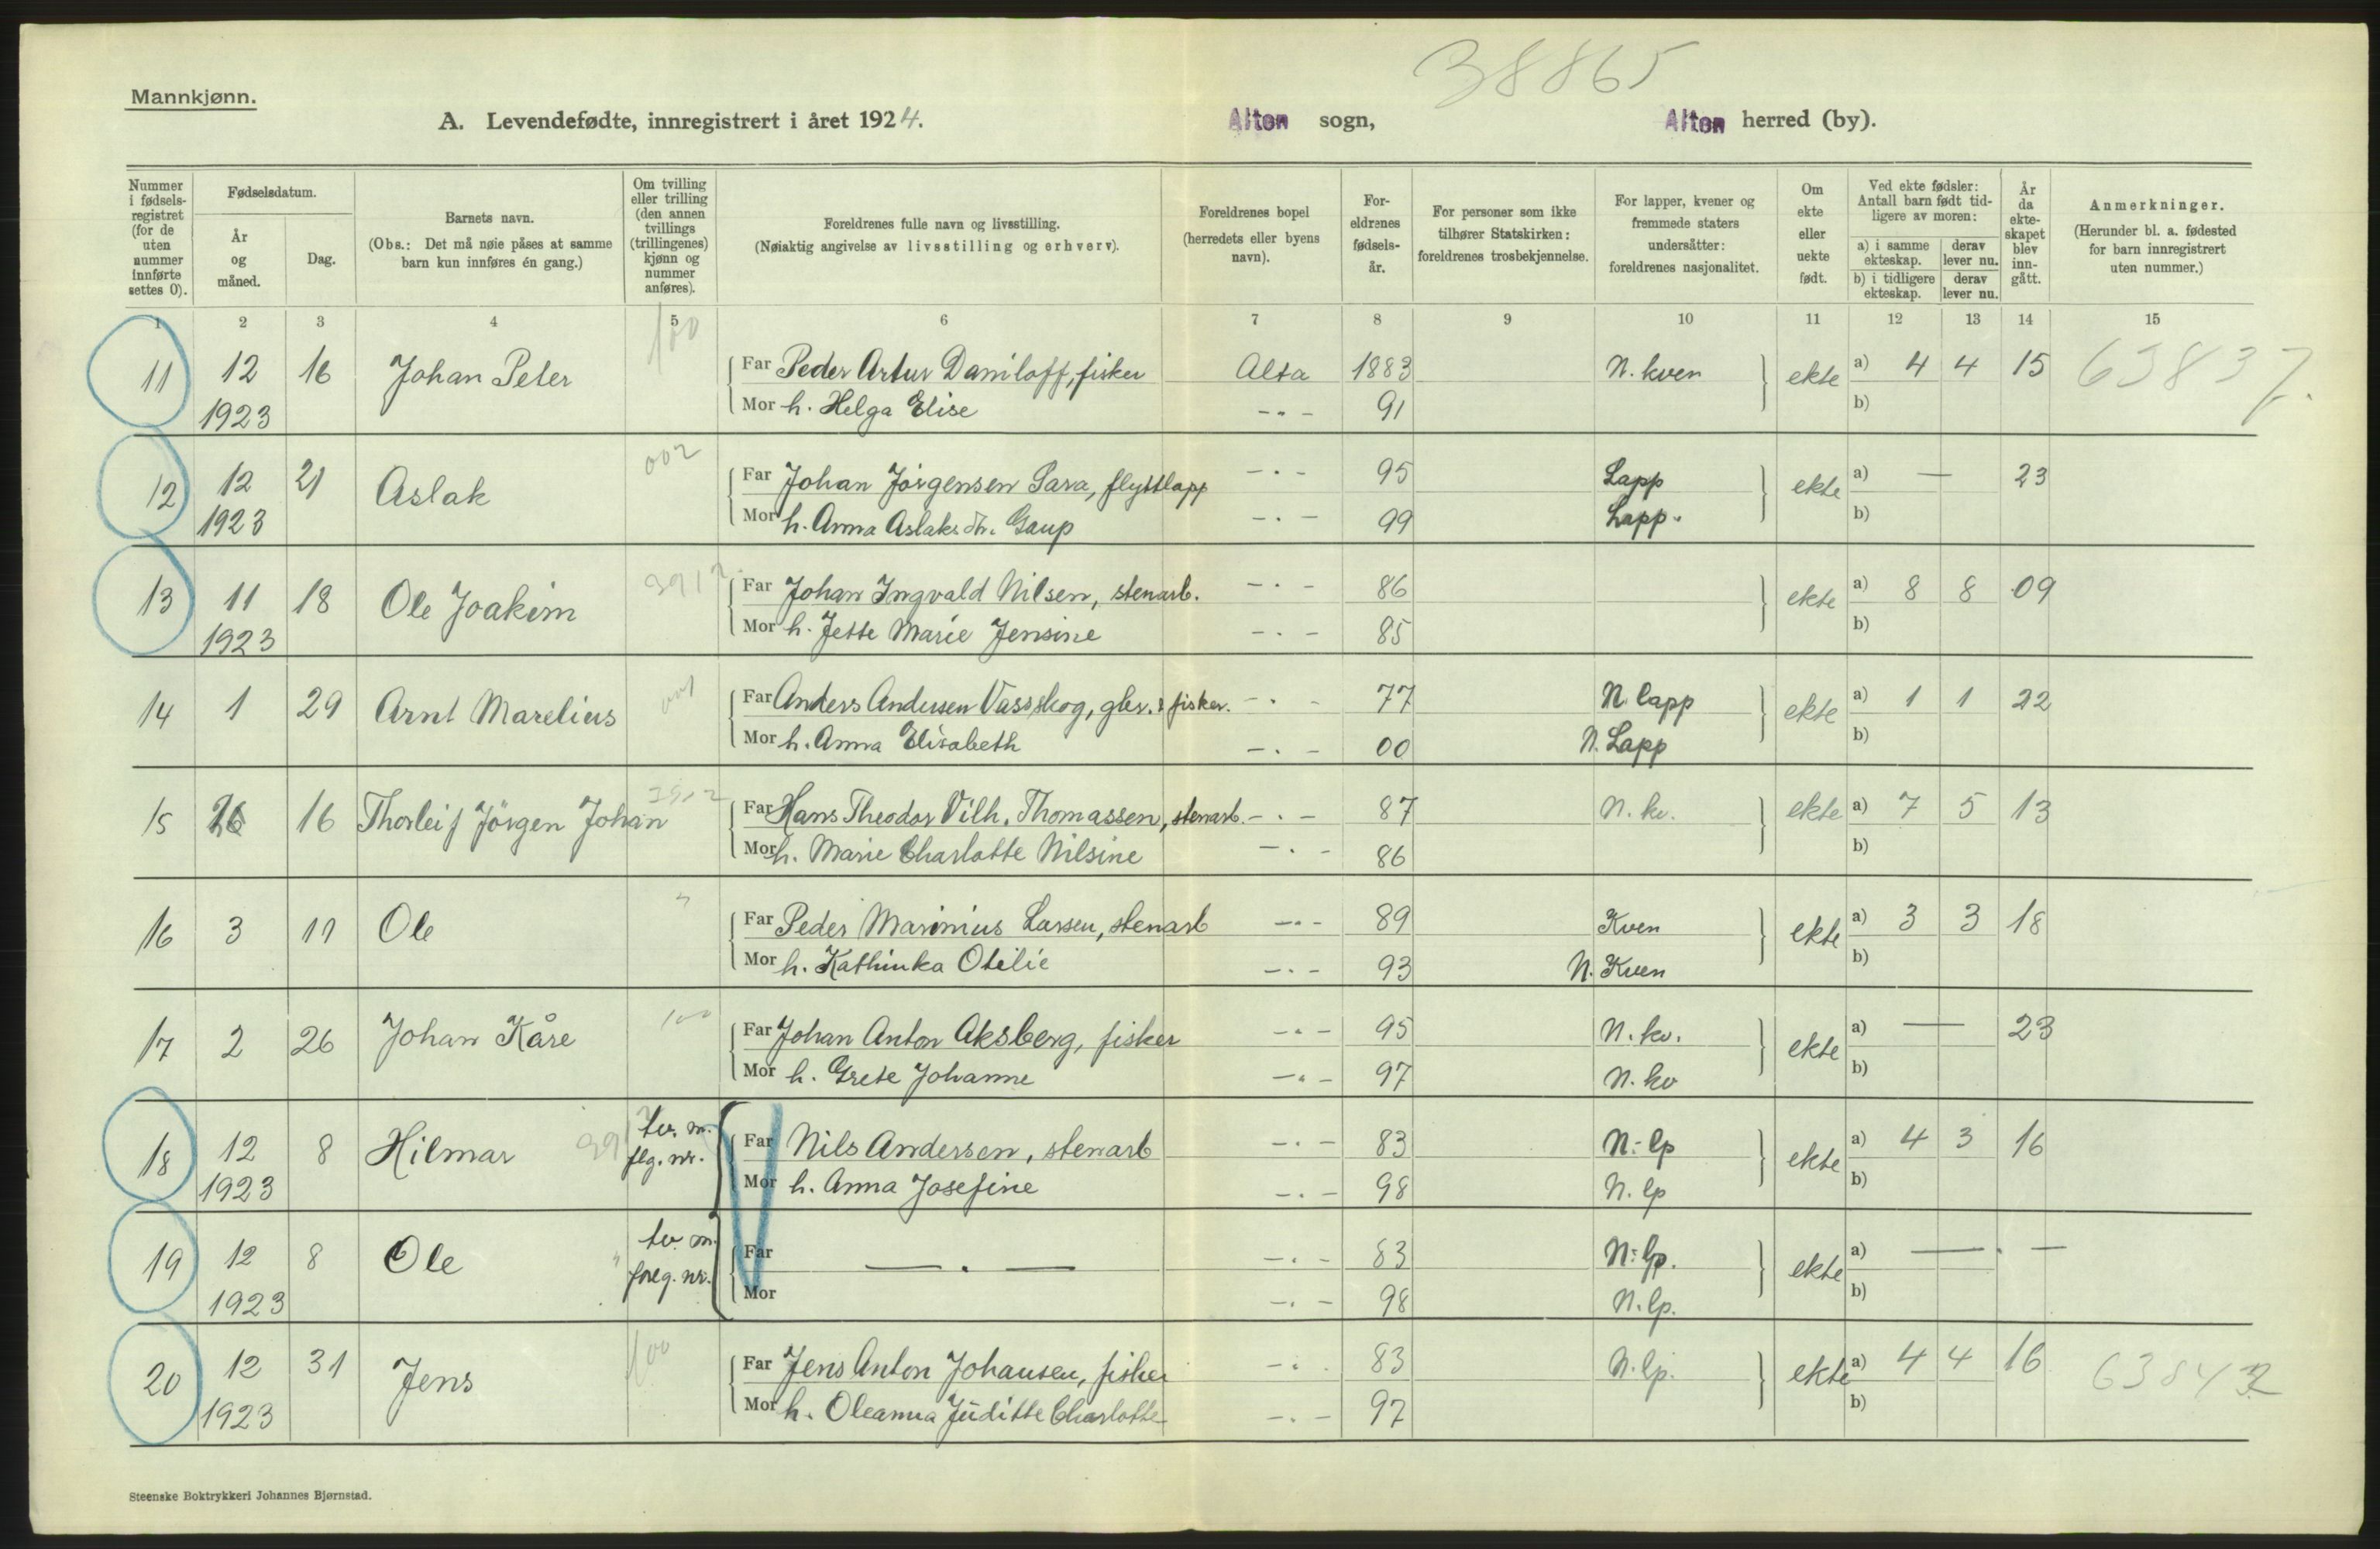 38865
Mannkjønn.
A. Levendefødte, innregistrert i året 1924.
Alten sogn,
Alten herred (by).
Nummer i fødsels-registret (for de uten nummer innførte settes 0).
Fødselsdatum.
År og måned.
Dag.
Barnets navn.
(Obs.: Det må nøie påses at samme barn kun innføres én gang.)
Om tvilling eller trilling (den annen tvillings (trillingenes) kjønn og nummer anføres).
Foreldrenes fulle navn og livsstilling.
(Nøiaktig angivelse av livsstilling og erhverv).
Foreldrenes bopel (herredets eller byens navn).
For-eldrenes fødsels-år.
For personer som ikke tilhører Statskirken: foreldrenes trosbekjennelse.
For lapper, kvener og fremmede staters undersåtter: foreldrenes nasjonalitet.
Om ekte eller uekte født.
Ved ekte fødsler: Antall barn født tid-ligere av moren:
a) i samme ekteskap. derav lever nu.
b) i tidligere ekteskap. derav lever nu.
År da ekte-skapet blev inn-gått.
Anmerkninger.
(Herunder bl. a. fødested for barn innregistrert uten nummer.)
1 2 3 4 5 6 7 8 9 10 11 12 13 14 15
100
11 12 16 Johan Peter Far Peder Artur Daniloff, fisker Alta 1883 N. kven ekte a) 4 4 15 63837.
1923 Mor h. Helga Elise -"- 91 b)
12 12 21 Aslak 002 Far Johan Jörgensen Sara, flyttlapp -"- 95 Lapp ekte a) — 23
1923 Mor h. Anna Aslaksdtr. Gaup -"- 99 Lapp. b)
13 11 18 Ole Joakim 3912 Far Johan Ingvald Nilsen, stenarb. -"- 86 ekte a) 8 8 09
1923 Mor h. Jette Marie Jensine -"- 85 b)
14 1 29 Arnt Marelius Far Anders Andersen Vassskog, gbr. & fisker. -"- 77 N. lapp ekte a) 1 1 22
Mor h. Anna Elisabeth -"- 00 N. Lapp b)
15 16 Thorleif Jörgen Johan 3912 Far Hans Theodor Vilh. Thomassen, stenarb. -"- 87 N. kv. ekte a) 7 5 13
Mor h. Marie Charlotte Nilsine -"- 86 b)
16 3 11 Ole " Far Peder Marinius Larsen, stenarb -"- 89 Kven ekte a) 3 3 18
Mor h. Kathinka Otilie -"- 93 N. Kven b)
17 2 26 Johan Kåre 100 Far Johan Anton Aksberg, fisker -"- 95 N. kv. ekte a) — 23
Mor h. Grete Johanne -"- 97 N. kv b)
18 12 8 Hilmar tv. m. flg. nr. Far Nils Andersen, stenarb -"- 83 N. lp ekte a) 4 3 16
1923 Mor h. Anna Josefine -"- 98 N. lp b)
19 12 8 Ole " tv. m. foreg. nr. Far — " — -"- 83 N. lp. ekte a) — " —
1923 Mor -"- 98 N. lp. b)
20 12 31 Jens 100 Far Jens Anton Johansen, fisker -"- 83 N. lp. ekte a) 4 4 16 63843
1923 Mor h. Oleanna Juditte Charlotte -"- 97 b)
Steenske Boktrykkeri Johannes Bjørnstad.